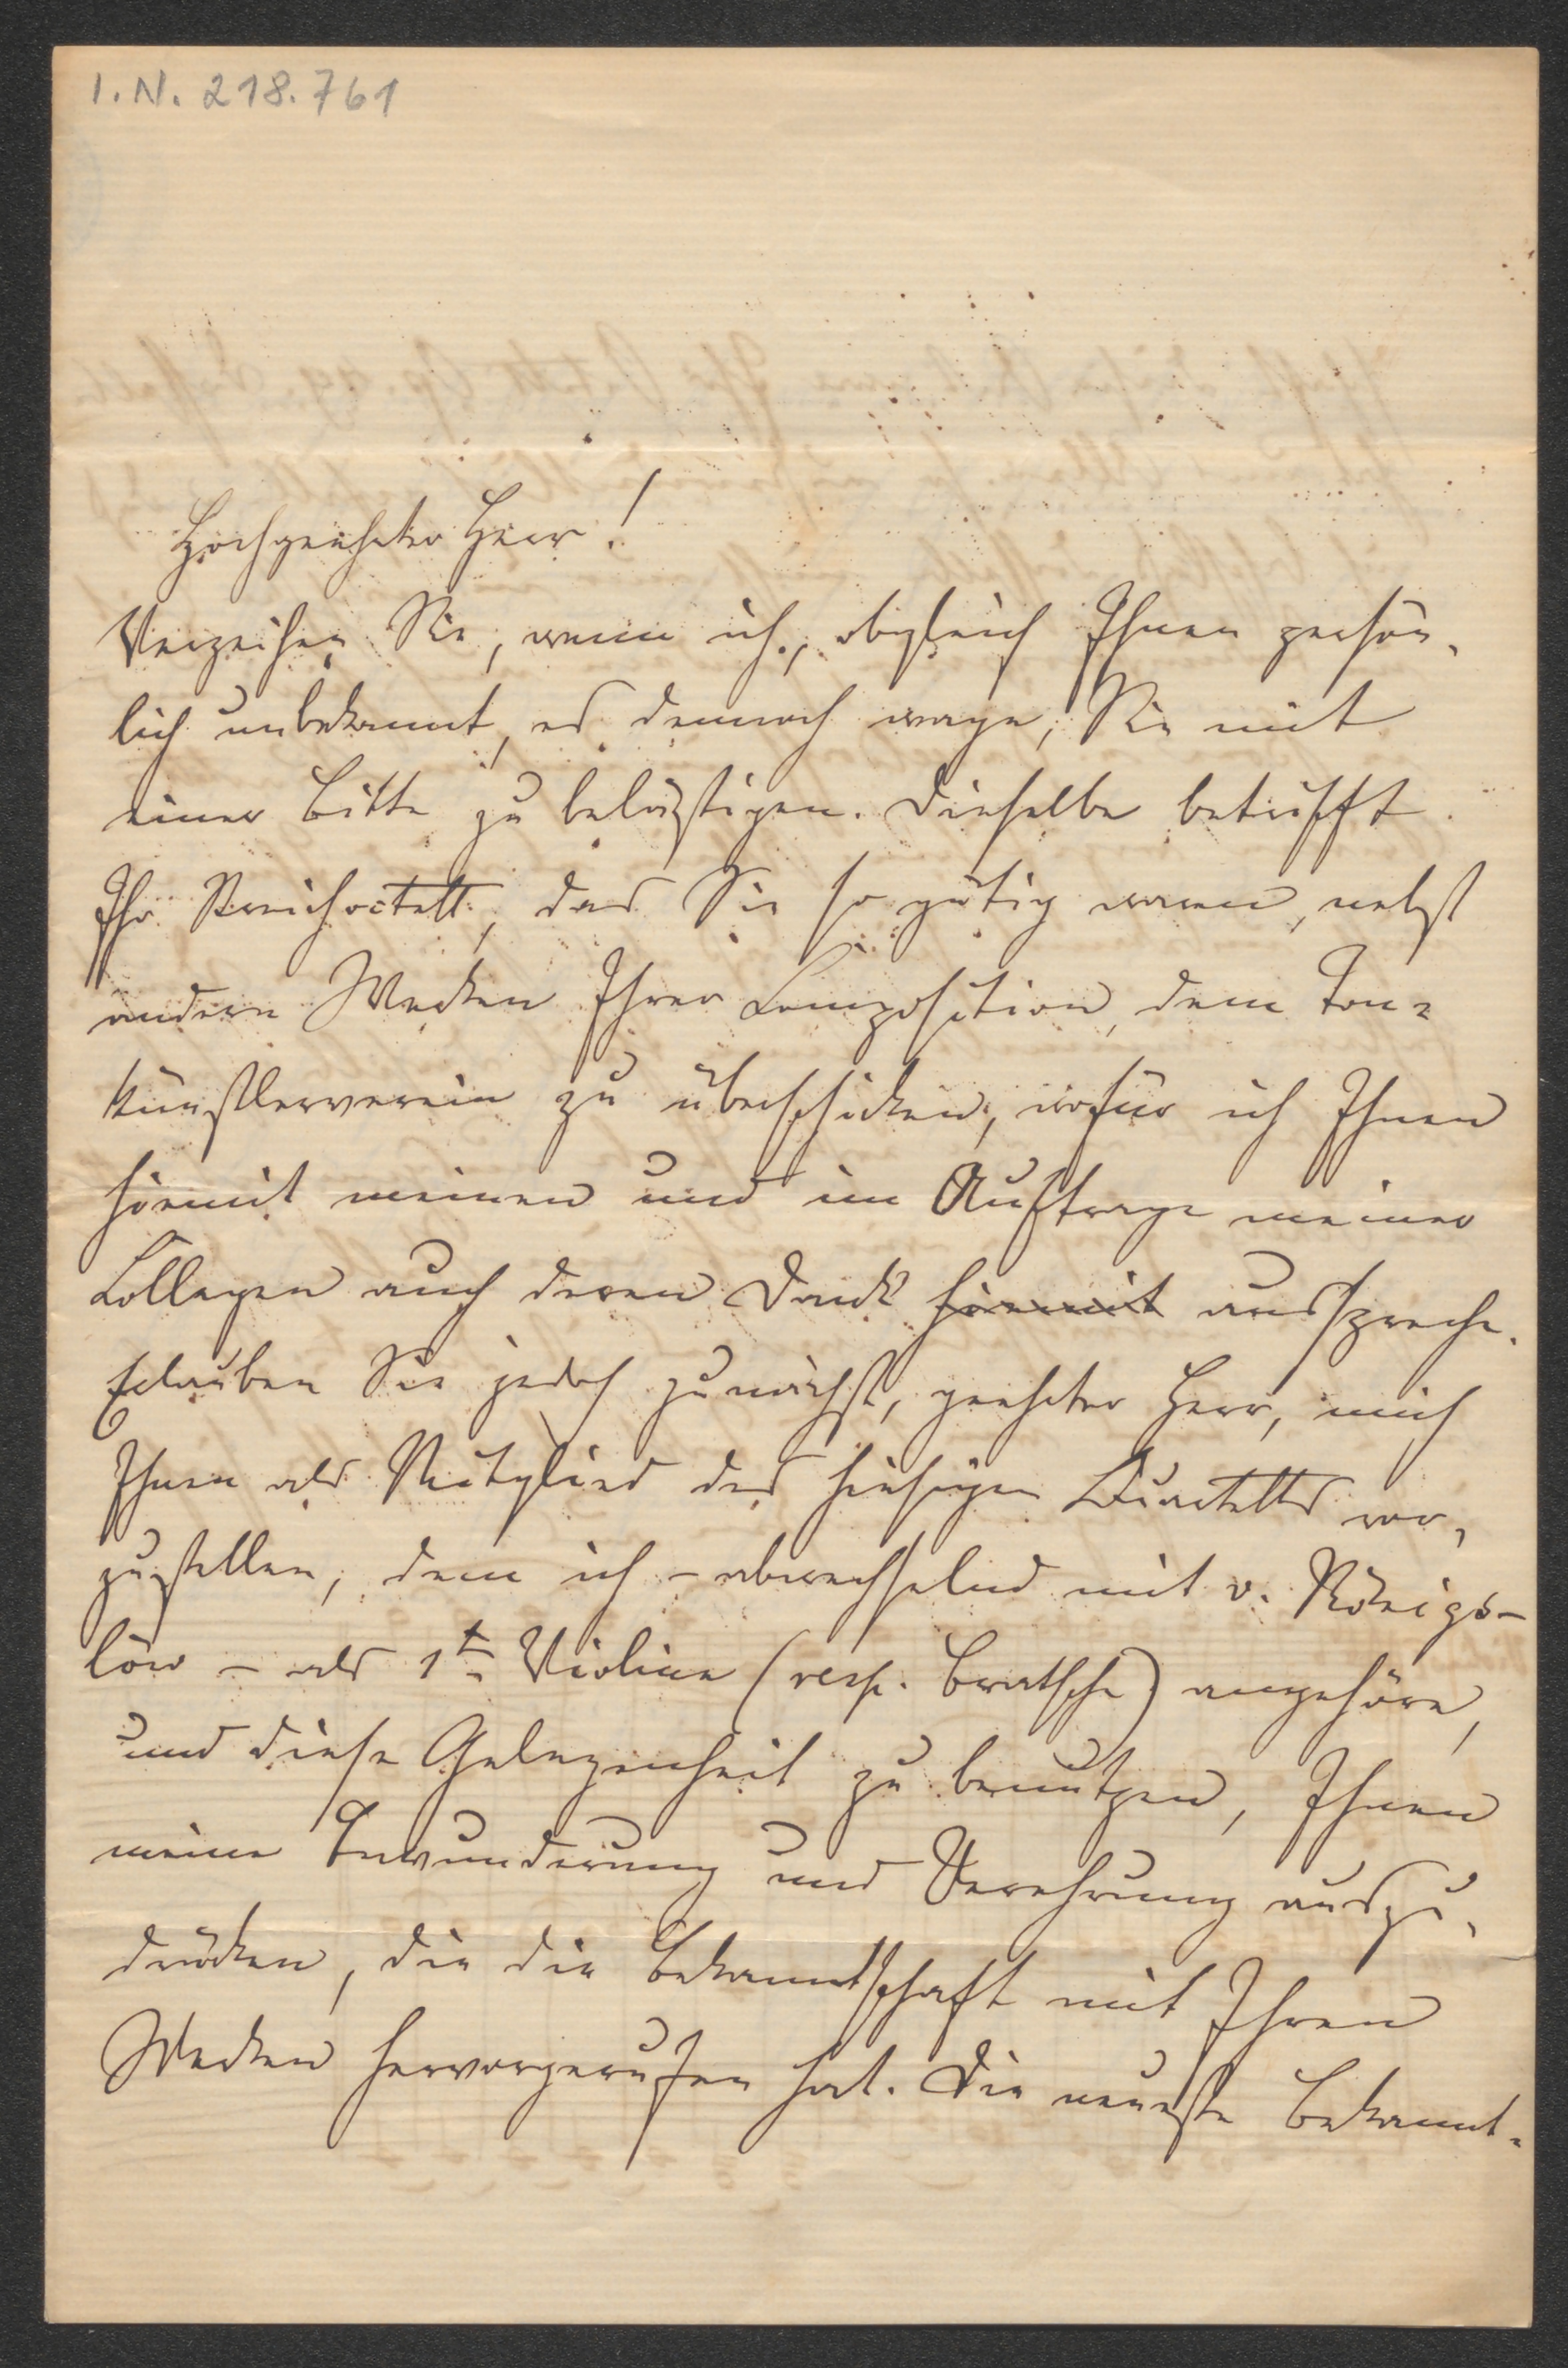 I.N. 218.761
Hochgeehrter Herr!
Verzeihen Sie, wenn ich, obgleich Ihnen persön-
lich unbekannt, es dennoch wage, Sie mit
einer Bitte zu belästigen. Dieselbe betrifft
Ihr Streichoctett, das Sie so gütig waren, nebst
andern Werken Ihrer Composition, dem Ton-
künstlerverein zu überschicken, wofür ich Ihnen
hiemit meinen und im Auftrage meiner
Collegen auch deren Dank hiermit ausspreche.
Erlauben Sie jedoch zunächst, geehrter Herr, mich
Ihnen als Mitglied des hiesigen Quartetts vor-
zustellen, dem ich - abwechselnd mit v. Königs-
löw - als 1te Violine (resp. Bratsche) angehöre,
und diese Gelegenheit zu benutzen, Ihnen
meine Bewunderung und Verehrung auszu-
drücken, die die Bekanntschaft mit Ihren
Werken hervorgerufen hat. Die neueste Bekannt-